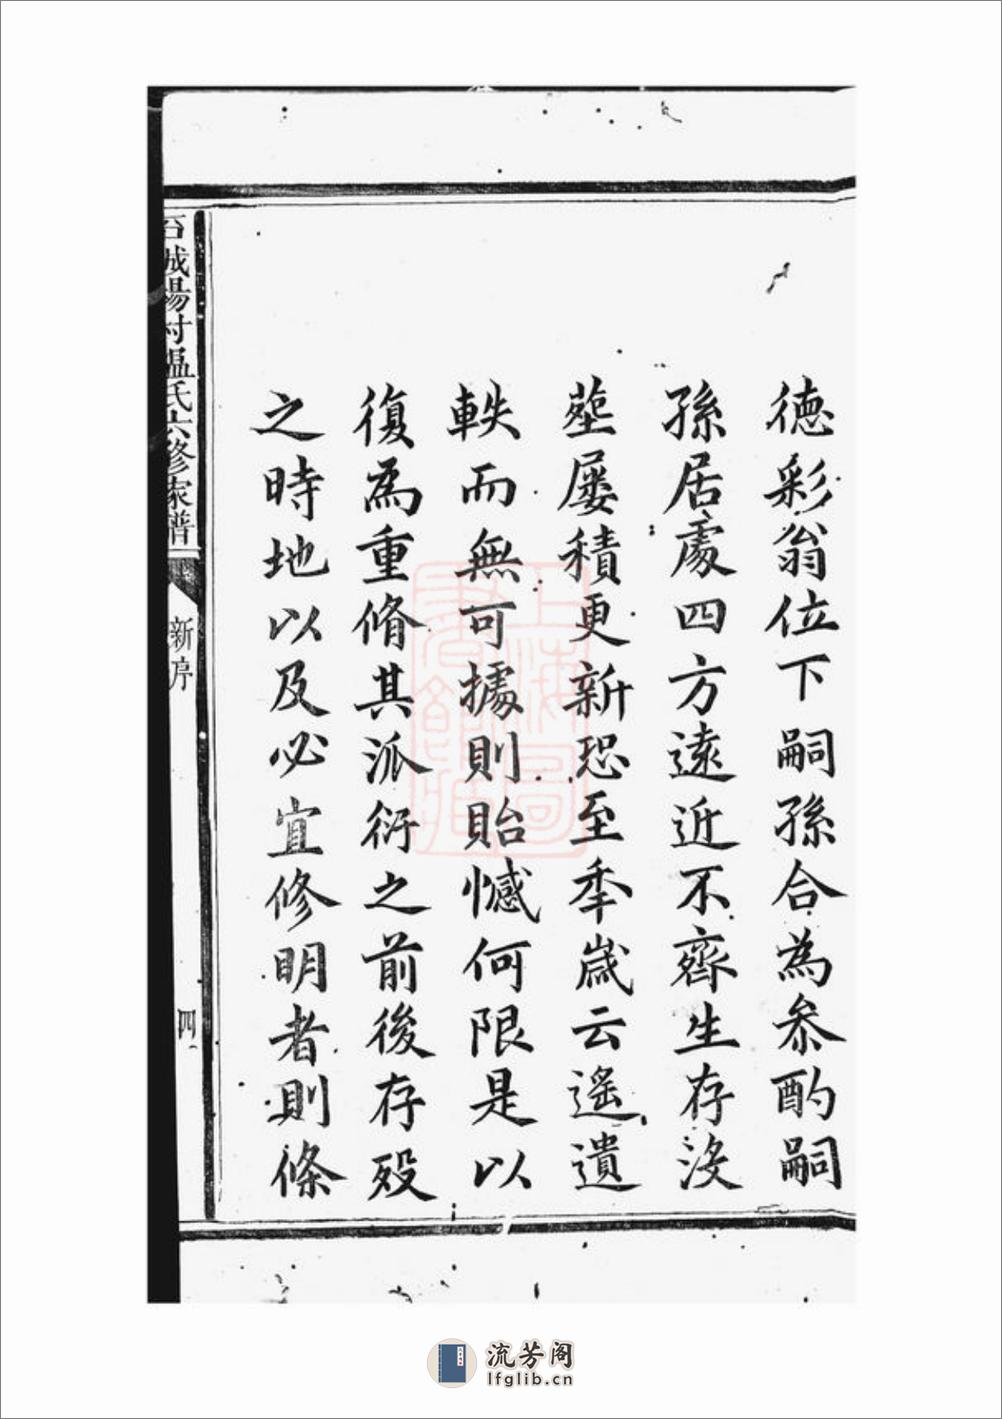 德彩翁位下嗣孫合為叅酌嗣
孫居處四方遠近不齊生存沒
塟屢積更新恐至年歲云遙遺
軼而無可據則貽憾何限是以
復為重脩其派衍之前後存歿
之時地以及必宜修明者則條
石城楊村温氏六修家譜
新序
四
上海圖書館藏
流芳阁
lfglib.cn